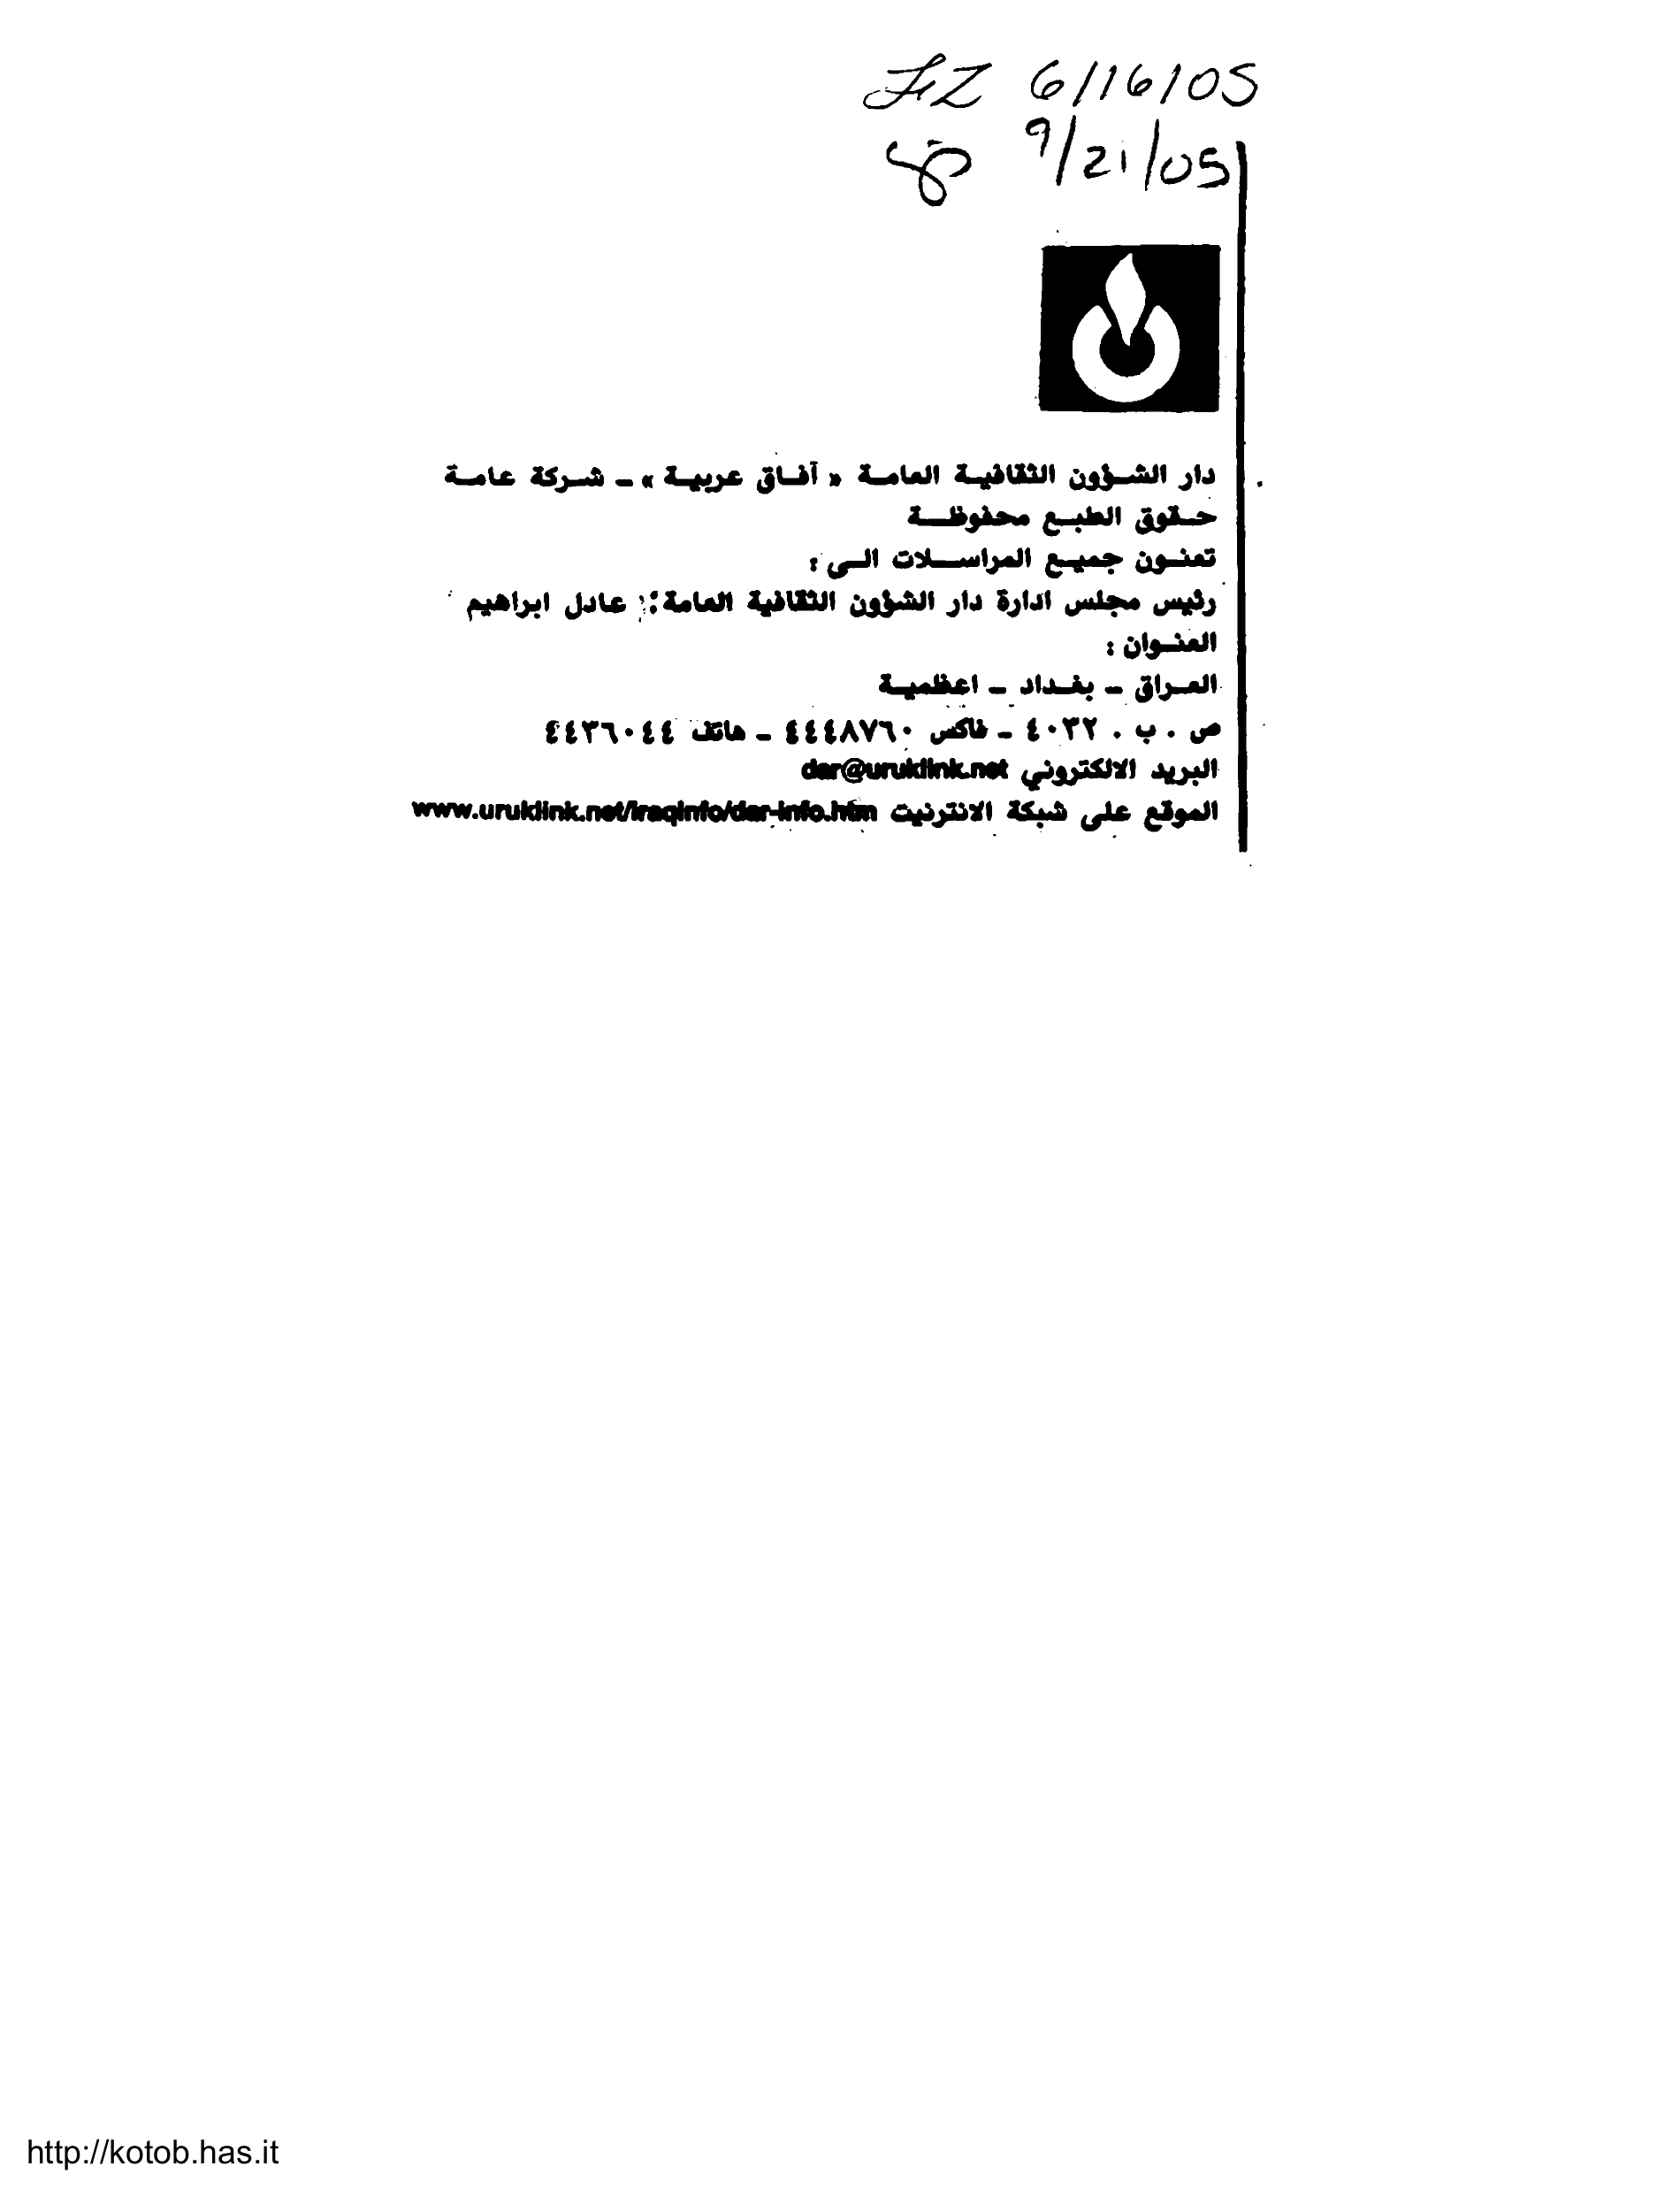 6/16/05
9/21/05
دار الشؤون الثقافية العامة « آفاق عربية » ـ شركة عامة
حقوق الطبع محفوظة
تعنون جميع المراسلات الى :
رئيس مجلس ادارة دار الشؤون الثقافية العامة : عادل ابراهيم
العنوان :
العراق ـ بغداد ـ اعظمية
ص . ب . ٤٠٣٢ ـ فاكس ٤٤٤٨٧٦٠ ـ هاتف ٤٤٣٦٠٤٤
البريد الالكتروني dar@uruklink.net
الموقع على شبكة الانترنيت www.uruklink.net/iraqinfo/dar-info.htm
http://kotob.has.it